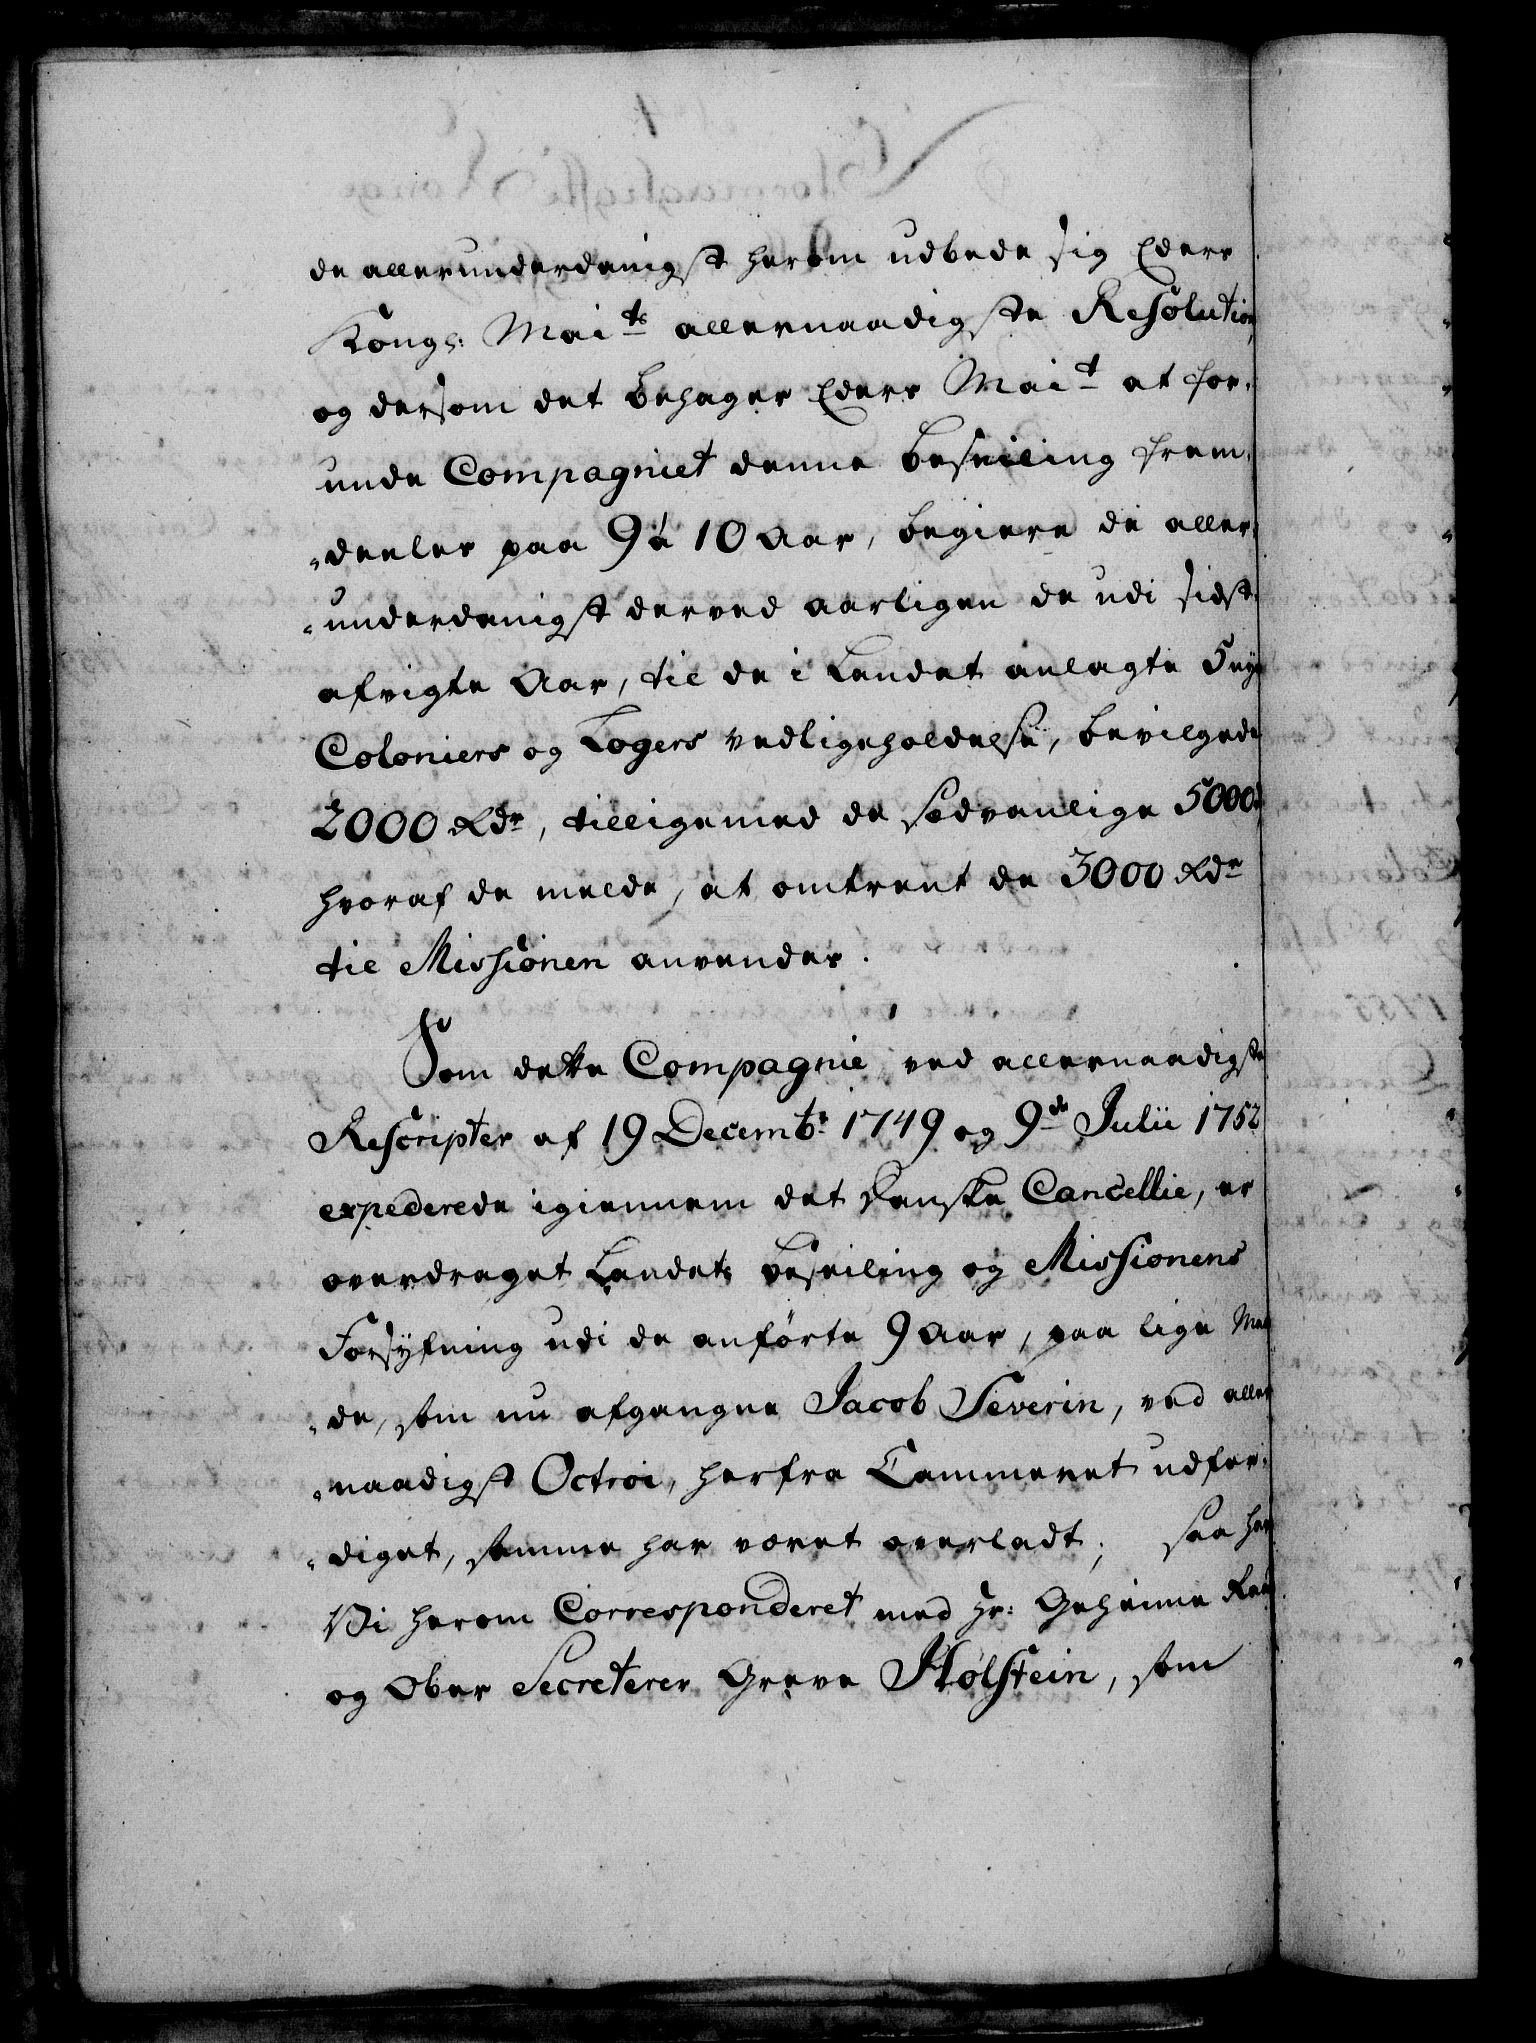 de allerunderdanigst herom udbede sig Eders
Kongs: Maits allernaadigste Resolution,
og dersom det behager Eders Mait at for-
unde Compagniet denne beseiling frem-
-deeles paa 9 á 10 Aar, begiere de aller-
-underdanigst derved aarligen de udi sidst-
afvigte Aar, til de i Landet anlagte 5 nye
Coloniers og Logers vedligeholdelse, bevilgede
2000 Rdr, tilligemed de sædvanlige 5000
hvoraf de melde, at omtrent de 3000 Rdr
til Missionen anvendes.
Som dette Compagnie ved allernaadigste
Rescripter af 19 Decembr: 1749 og 9de Julii 1752
expederede igiennem det danske Cancellie, er
overdraget Landets beseiling og Missionens
Forsÿfning udi de anførte 9 Aar, paa lige Maa-
-de, som nu afgangne Jacob Severin, ved aller-
-naadigst Octroi, herfra Cammeret udfer-
-diget, samme har været overladt; saa har
Vi herom Corresponderet med Hr: Geheime Raad
og Ober Secreterer Greve Holstein, som